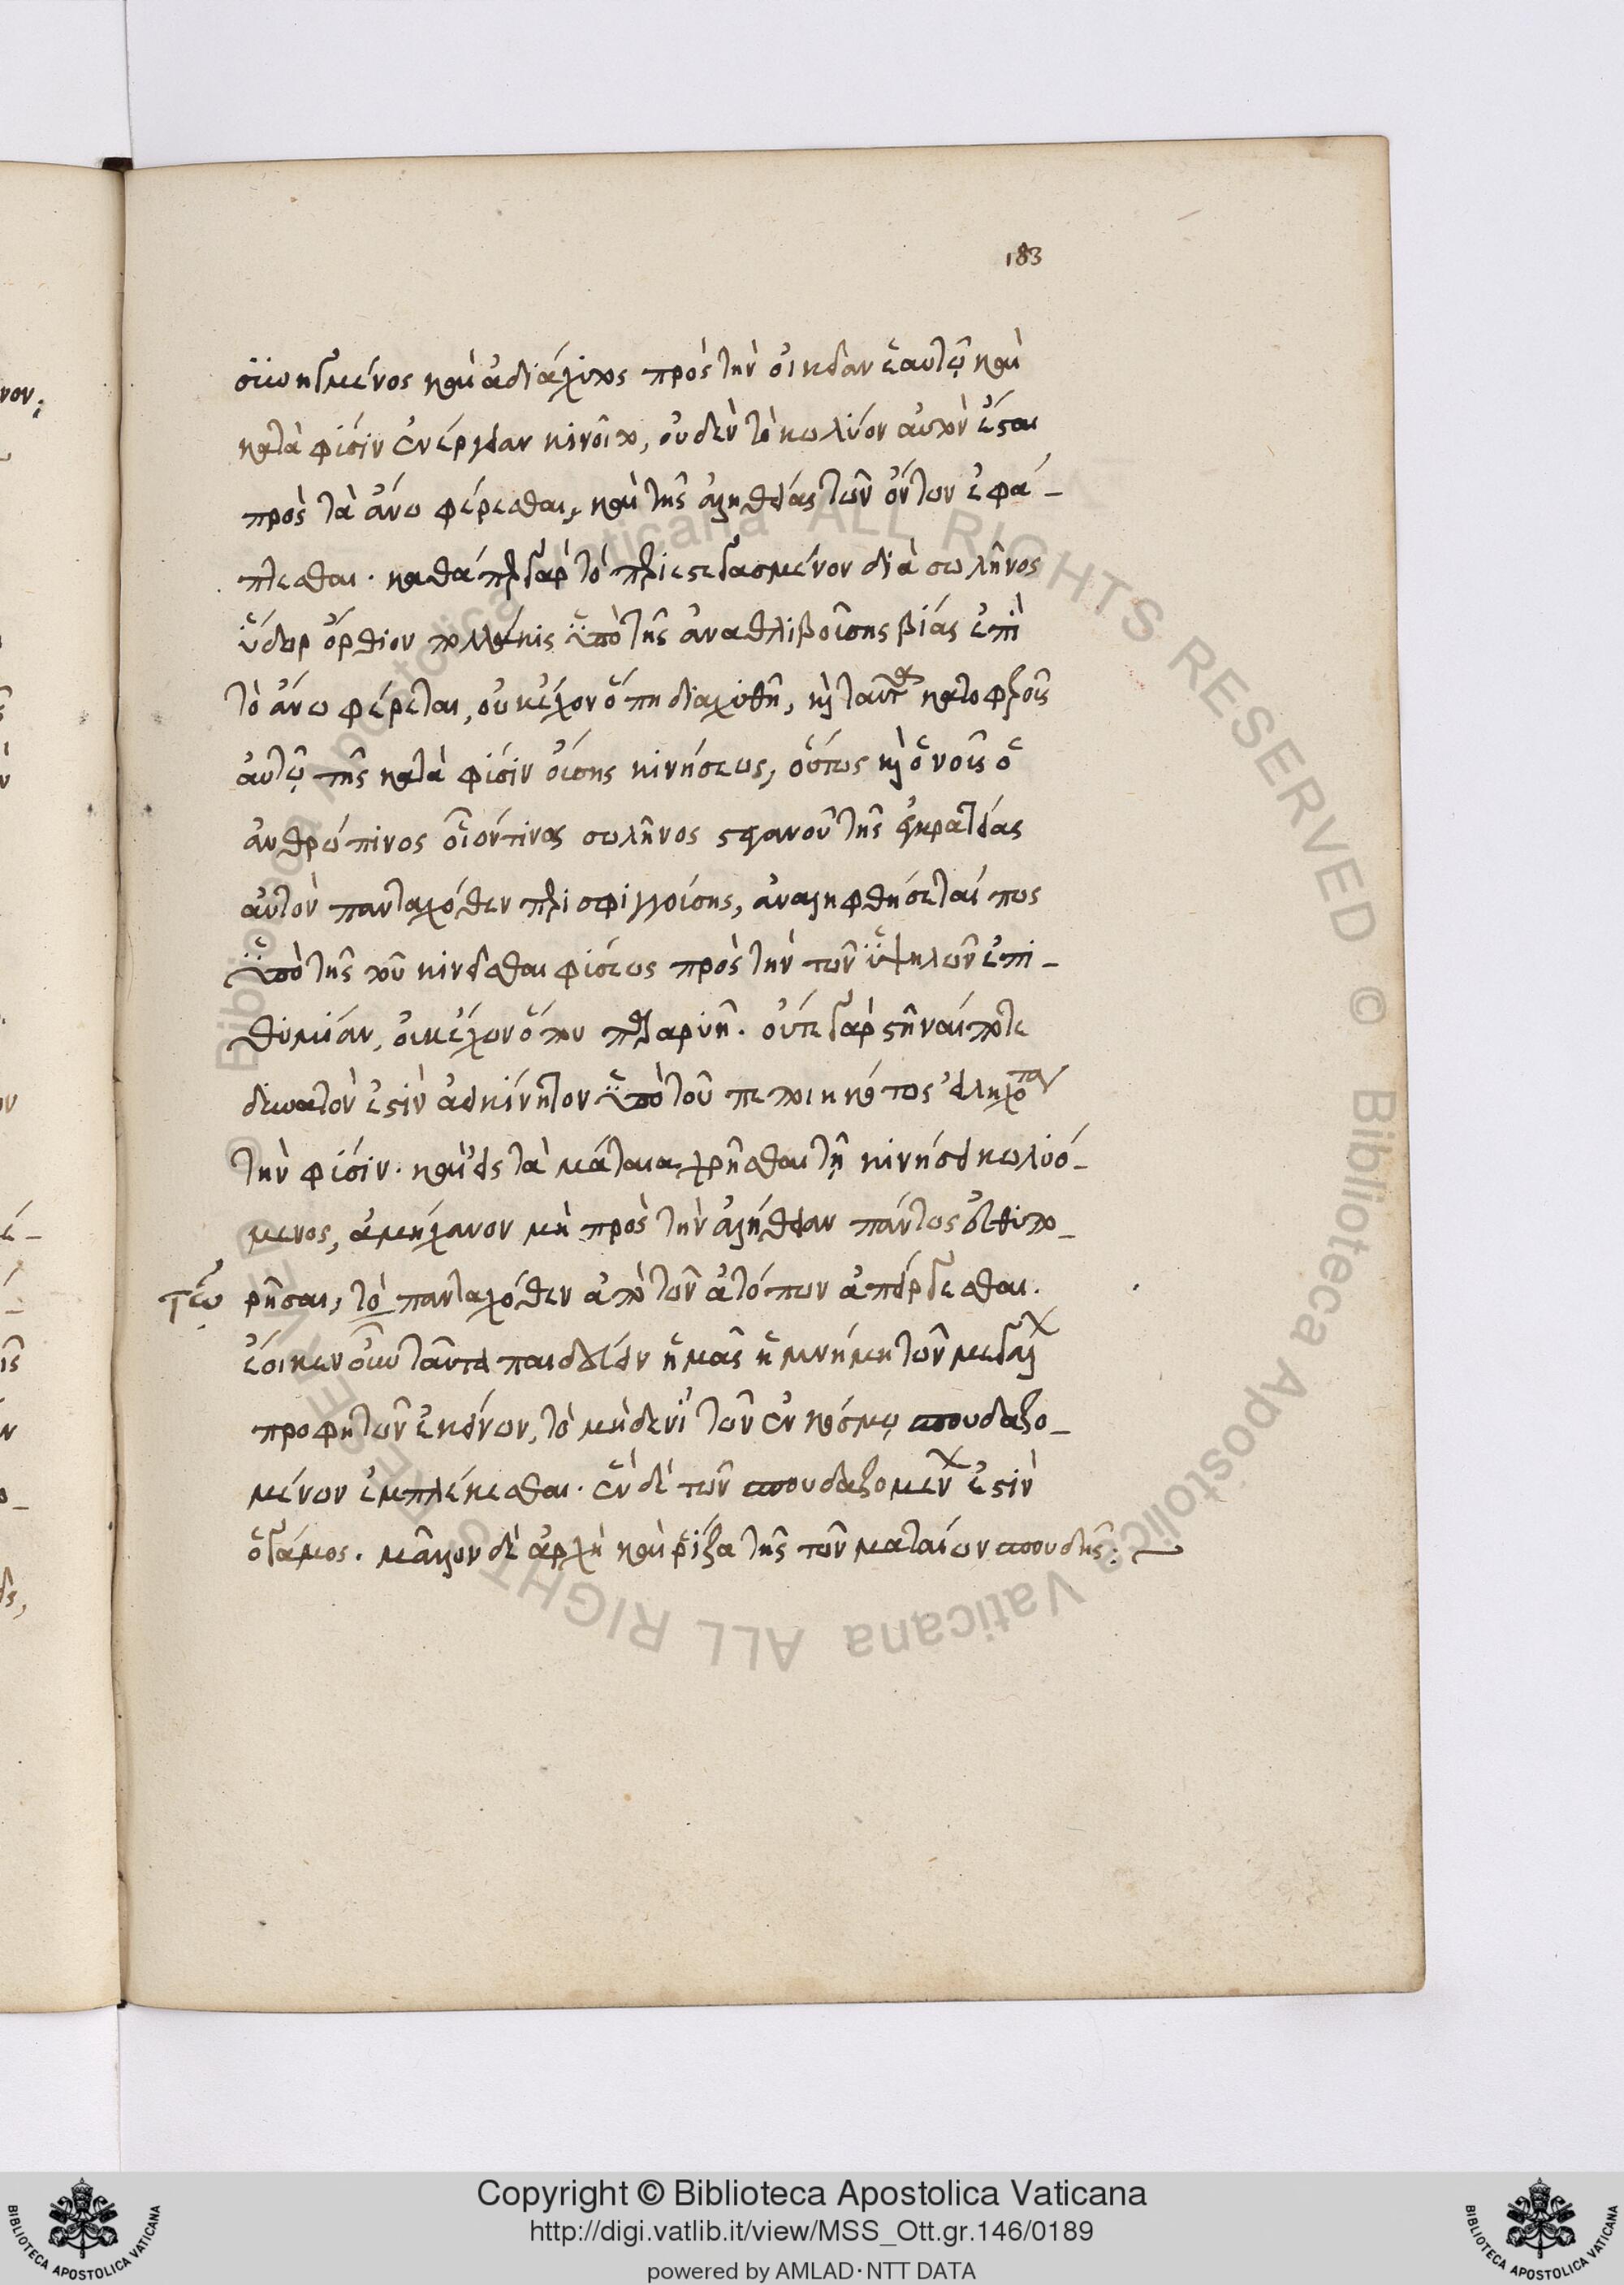 183
συνηγμένος καὶ ἀδιάχυτος πρὸς τὴν οἰκείαν ἑαυτῷ καὶ
κατὰ φύσιν ἐνέργειαν κινοῖτο, οὐδὲν τὸ κωλύον αὐτὸν ἔσται
πρὸς τὰ ἄνω φέρεσθαι, καὶ τῆς ἀληθείας τῶν ὄντων ἐφά-
πτεσθαι. καθάπερ γὰρ τὸ περιεστεγασμένον διὰ σωλῆνος
ὕδωρ ὄρθιον πολλάκις ὑπὸ τῆς ἀναθλιβούσης βίας ἐπὶ
τὸ ἄνω φέρεται, οὐκ ἔχον ὅπη διαχυθῇ, καὶ ταῦτα κατωφεροῦς
αὐτῷ τῆς κατὰ φύσιν οὔσης κινήσεως, οὕτως καὶ ὁ νοῦς ὁ
ἀνθρώπινος οἷόν τινος σωλῆνος στενοῦ τῆς ἐγκρατείας
αὐτὸν πανταχόθεν περισφιγγούσης, ἀναληφθήσεταί πως
ὑπὸ τῆς τοῦ κινεῖσθαι φύσεως πρὸς τὴν τῶν ὑψηλῶν ἐπι-
θυμίαν, οὐκ ἔχων ὅπου παραρυῇ. οὔτε γὰρ στῆναί ποτε
δυνατόν ἐστιν ἀεικίνητον ὑπὸ τοῦ πεποιηκότος εἰληχότα
τὴν φύσιν. καὶ εἰς τὰ μάταια χρῆσθαι τῇ κινήσει κωλυό-
μενος, ἀμήχανον μὴ πρὸς τὴν ἀλήθειαν πάντως εὐθυπο-
τέω ρῆσαι, τὸ πανταχόθεν ἀπὸ τῶν ἀτόπων ἀπείργεσθαι.
ἔοικεν οὖν ταῦτα παιδεύειν ἡμᾶς ἡ μνήμη τῶν μεγάλων
προφητῶν ἐκείνων, τὸ μηδενὶ τῶν ἐν κόσμῳ σπουδαζο-
μένων ἐμπλέκεσθαι. ἓν δὲ τῶν σπουδαζομένων ἐστὶν
ὁ γάμος. μᾶλλον δὲ ἀρχὴ καὶ ῥίζα τῆς τῶν ματαίων σπουδῆς:
Copyright © Biblioteca Apostolica Vaticana
http://digi.vatlib.it/view/MSS_Ott.gr.146/0189
powered by AMLAD·NTT DATA
BIBLIOTECA APOSTOLICA VATICANA
BIBLIOTECA APOSTOLICA VATICANA
© Biblioteca Apostolica Vaticana ALL RIGHTS RESERVED © Biblioteca Apostolica Vaticana ALL RIGHTS RESERVED